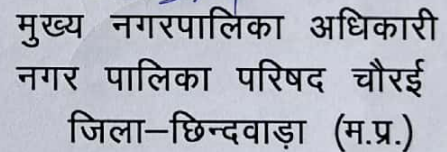 मुख्य नगरपालिका अधिकारी
नगर पालिका परिषद चौरई
जिला–छिन्दवाड़ा (म.प्र.)